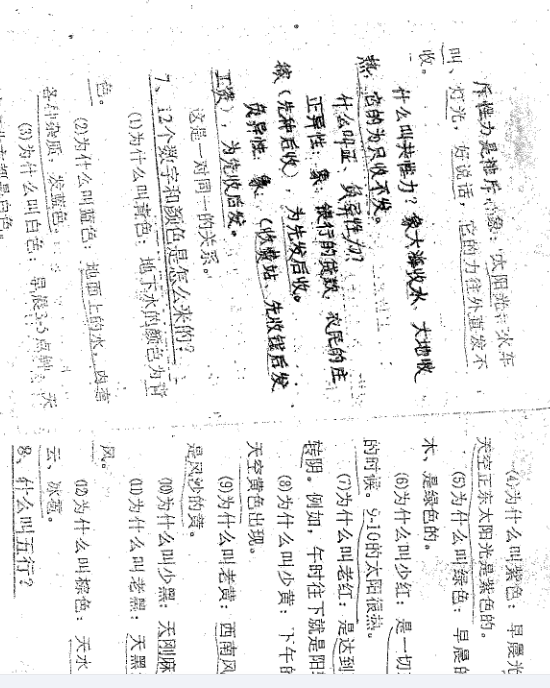 斥性力是推斥，象：太阳光、火车
叫、灯光，好说话，它的力往外直发不
收。
什么叫共性力？象大海收水、大地收
热，它的为只收不发。
什么叫正、负异性力？
正异性：象，银行的贷款，农民的庄
稼（先种后收），为先发后收。
负异性，象，（收费站、先收钱后发
工资）为先收后发。
这是一对同一的关系。
7、12个数字和颜色是怎么来的？
(1)为什么叫青色：地下水的颜色为青
色。
(2)为什么叫蓝色，地面上的水，内
各种杂质，发蓝色。
(3)为什么叫白色：早晨3-5点钟，天
(4)为什么叫紫色：早晨光
天空正东太阳光是紫色的。
(5)为什么叫绿色：早晨的
木、是绿色的。
(6)为什么叫少红：是一切
的时候。9-10的太阳很热。
(7)为什么叫老红：是达到
转阴。例如，午时往下就是阳
(8)为什么叫少黄：下午的
天空黄色出现。
(9)为什么叫老黄：西南风
是风沙的黄。
(10)为什么叫少黑：天刚麻
(11)为什么叫老黑：天黑
风。
(12)为什么叫棕色：天水
云、冰雹。
8、什么叫五行？